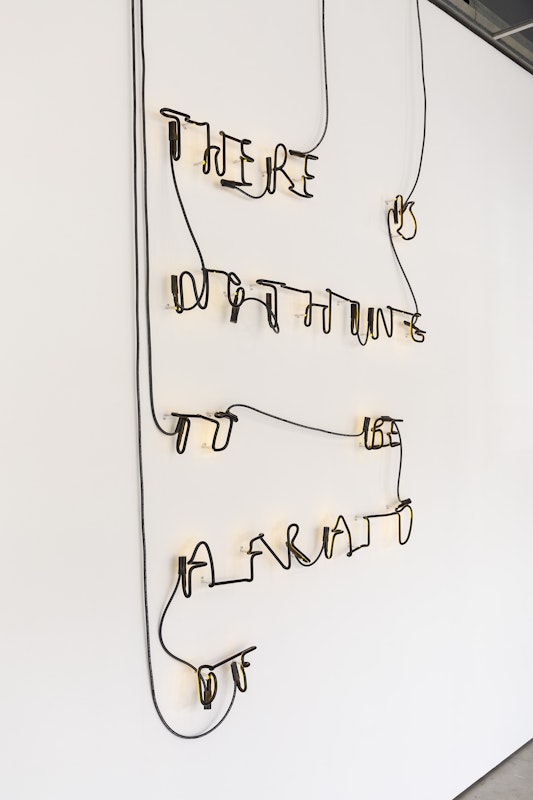 THERE IS
NOTHING
TO BE
AFRAID
OF